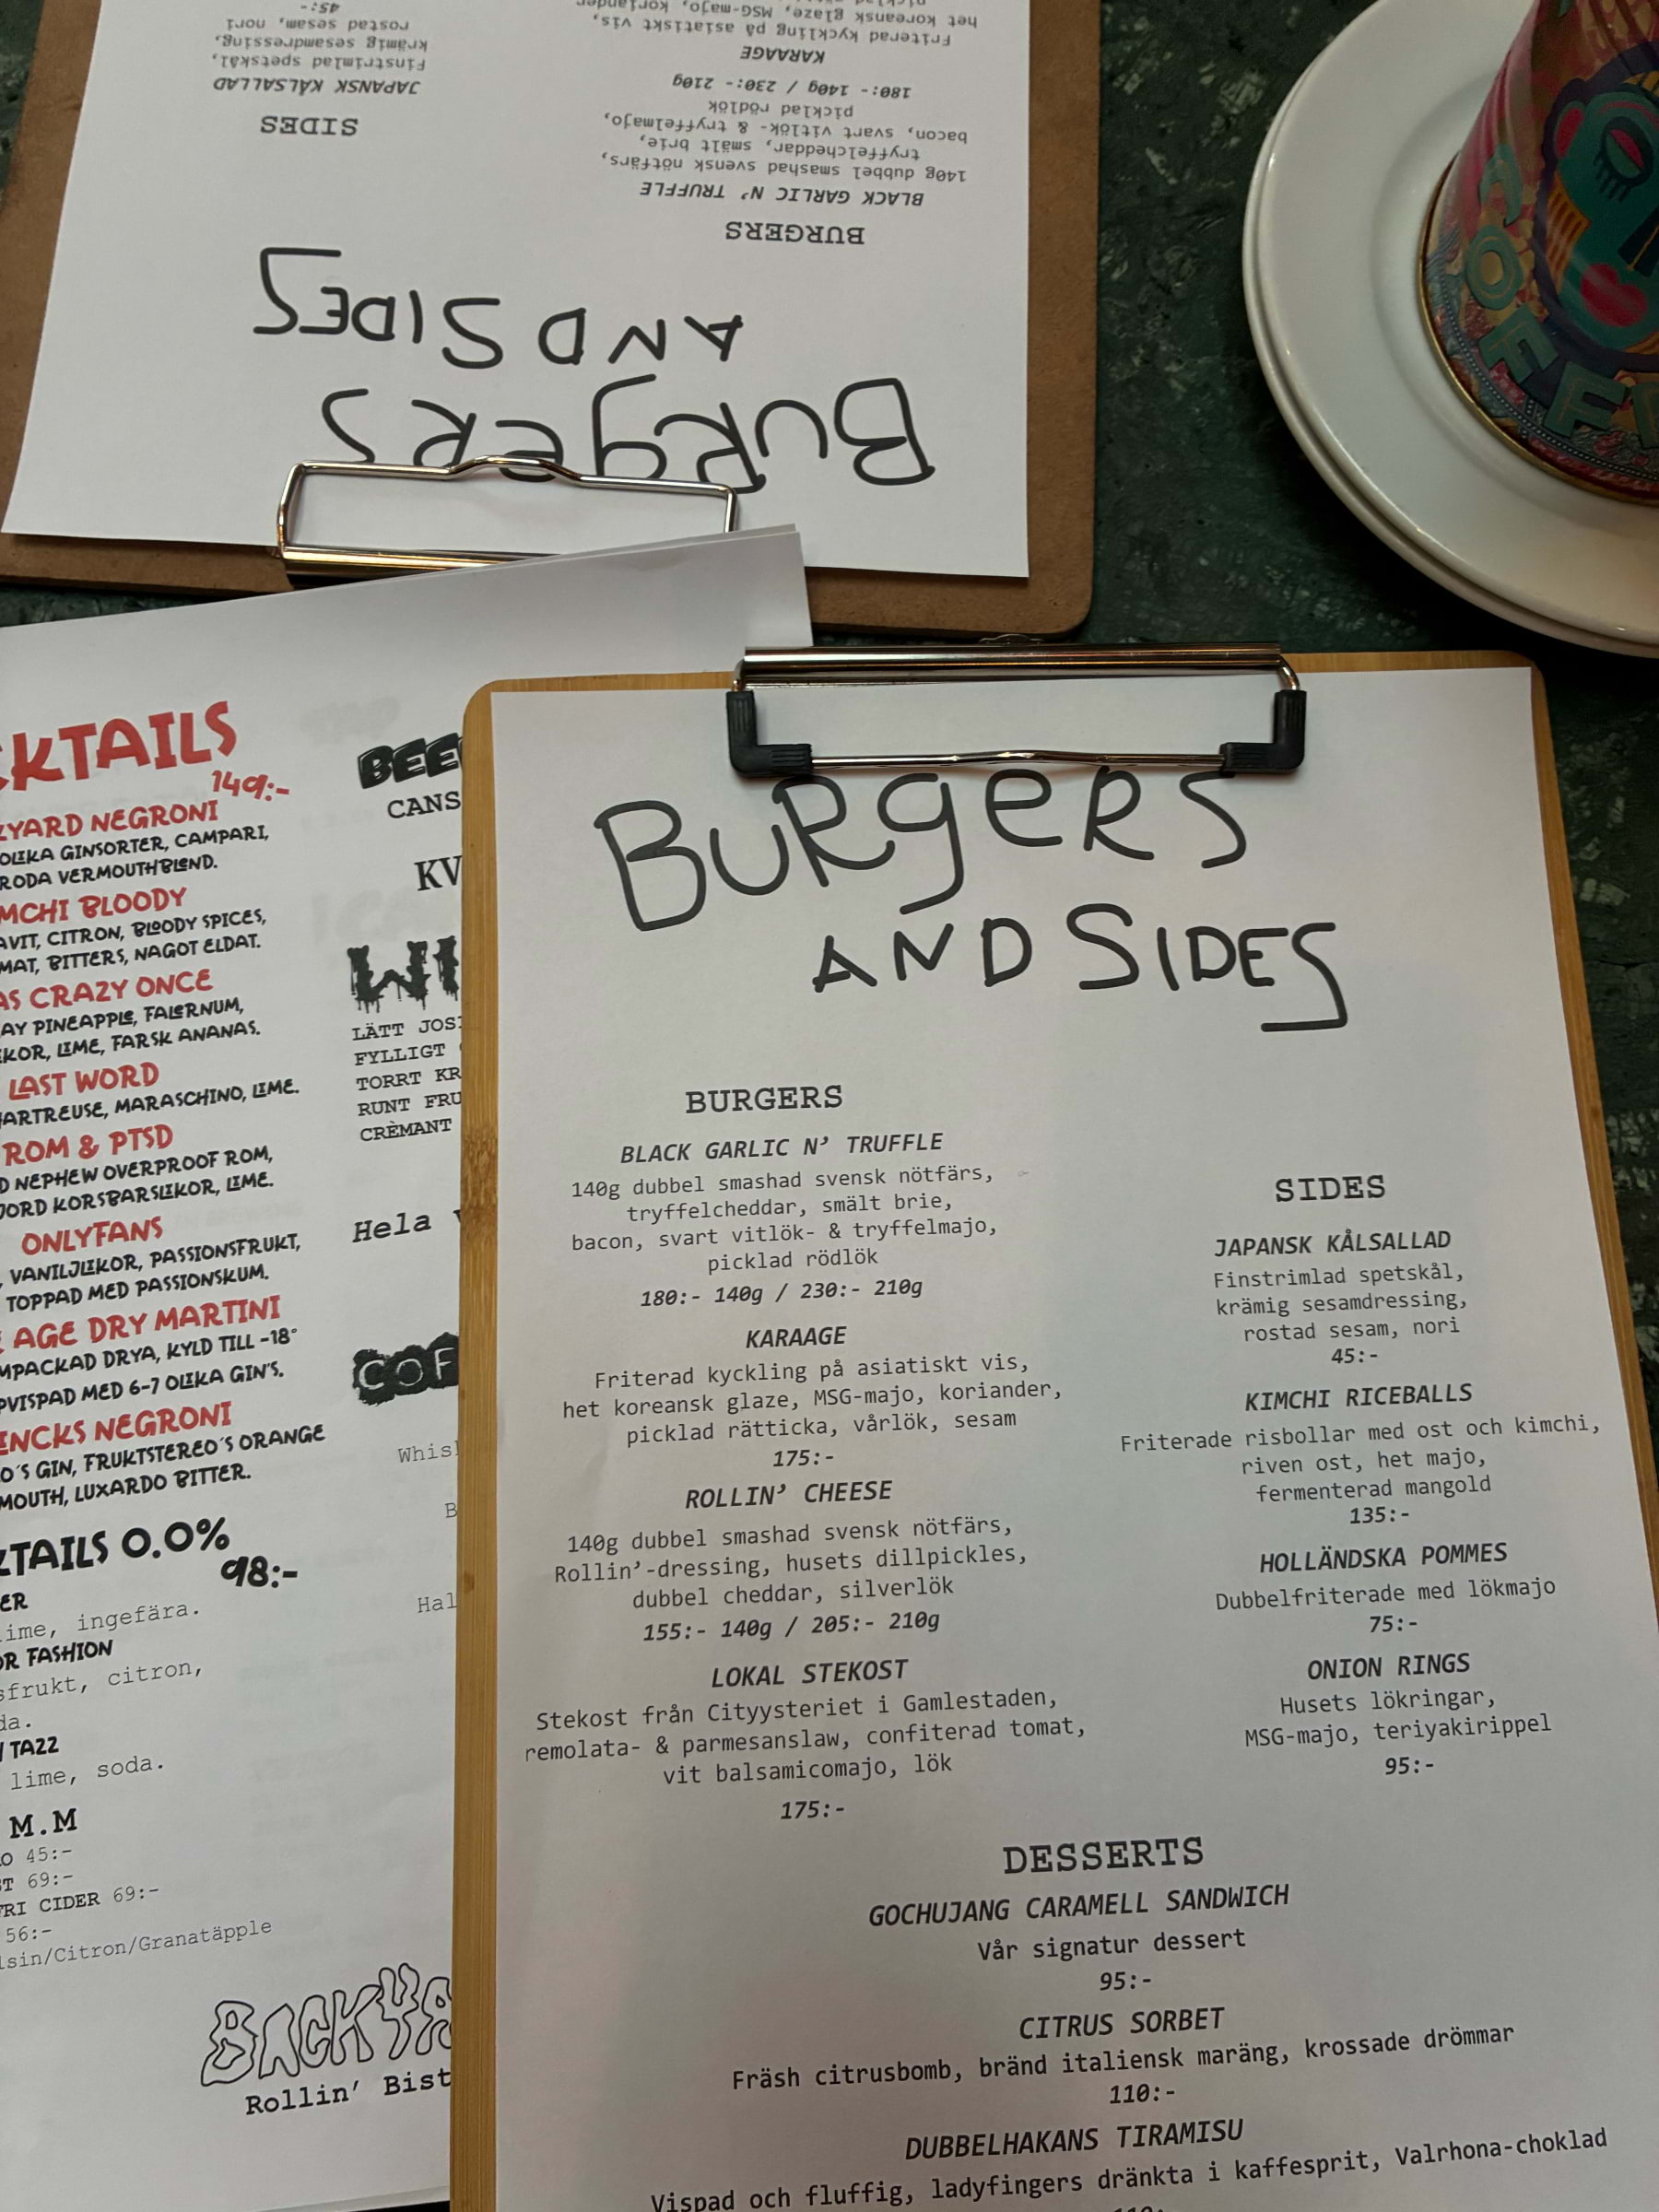 BURGERS
AND SIDES
BURGERS
BLACK GARLIC N' TRUFFLE
140g dubbel smashad svensk nötfärs,
tryffelcheddar, smält brie,
bacon, svart vitlök- & tryffelmajo,
picklad rödlök
180:- 140g / 230:- 210g
KARAAGE
Friterad kyckling på asiatiskt vis,
het koreansk glaze, MSG-majo, koriander,
SIDES
JAPANSK KÅLSALLAD
Finstrimlad spetskål,
krämig sesamdressing,
rostad sesam, nori
45:-
COFF
KTAILS
149:-
YARD NEGRONI
OLIKA GINSORTER, CAMPARI,
RODA VERMOUTHBLEND.
MCHI BLOODY
AVIT, CITRON, BLOODY SPICES,
MAT, BITTERS, NAGOT ELDAT.
AS CRAZY ONCE
AY PINEAPPLE, FALERNUM,
KOR, LIME, FARSK ANANAS.
LAST WORD
ARTREUSE, MARASCHINO, LIME.
ROM & PTSD
D NEPHEW OVERPROOF ROM,
JORD KORSBARSLIKOR, LIME.
ONLYFANS
, VANILJLIKOR, PASSIONSFRUKT,
TOPPAD MED PASSIONSKUM.
AGE DRY MARTINI
MPACKAD DRYA, KYLD TILL -18°
PVISPAD MED 6-7 OLIKA GIN'S.
ENCKS NEGRONI
O'S GIN, FRUKTSTEREO'S ORANGE
MOUTH, LUXARDO BITTER.
KTAILS 0.0%
98:-
ER
ime, ingefära.
OR FASHION
sfrukt, citron,
da.
TAZZ
lime, soda.
M.M
O 45:-
ST 69:-
FRI CIDER 69:-
56:-
lsin/Citron/Granatäpple
BEE
CANS
KV
WI
LÄTT JOS
FYLLIGT
TORRT KR
RUNT FRU
CRÈMANT
Hela v
COF
Whis
B
Hal
BACKYA
Rollin' Bist
BURGERS
AND SIDES
BURGERS
BLACK GARLIC N' TRUFFLE
140g dubbel smashad svensk nötfärs,
tryffelcheddar, smält brie,
bacon, svart vitlök- & tryffelmajo,
picklad rödlök
180:- 140g / 230:- 210g
KARAAGE
Friterad kyckling på asiatiskt vis,
het koreansk glaze, MSG-majo, koriander,
picklad rätticka, vårlök, sesam
175:-
ROLLIN' CHEESE
140g dubbel smashad svensk nötfärs,
Rollin'-dressing, husets dillpickles,
dubbel cheddar, silverlök
155:- 140g / 205:- 210g
LOKAL STEKOST
Stekost från Cityysteriet i Gamlestaden,
remolata- & parmesanslaw, confiterad tomat,
vit balsamicomajo, lök
175:-
SIDES
JAPANSK KÅLSALLAD
Finstrimlad spetskål,
krämig sesamdressing,
rostad sesam, nori
45:-
KIMCHI RICEBALLS
Friterade risbollar med ost och kimchi,
riven ost, het majo,
fermenterad mangold
135:-
HOLLÄNDSKA POMMES
Dubbelfriterade med lökmajo
75:-
ONION RINGS
Husets lökringar,
MSG-majo, teriyakirippel
95:-
DESSERTS
GOCHUJANG CARAMELL SANDWICH
Vår signatur dessert
95:-
CITRUS SORBET
Fräsh citrusbomb, bränd italiensk maräng, krossade drömmar
110:-
DUBBELHAKANS TIRAMISU
Vispad och fluffig, ladyfingers dränkta i kaffesprit, Valrhona-choklad